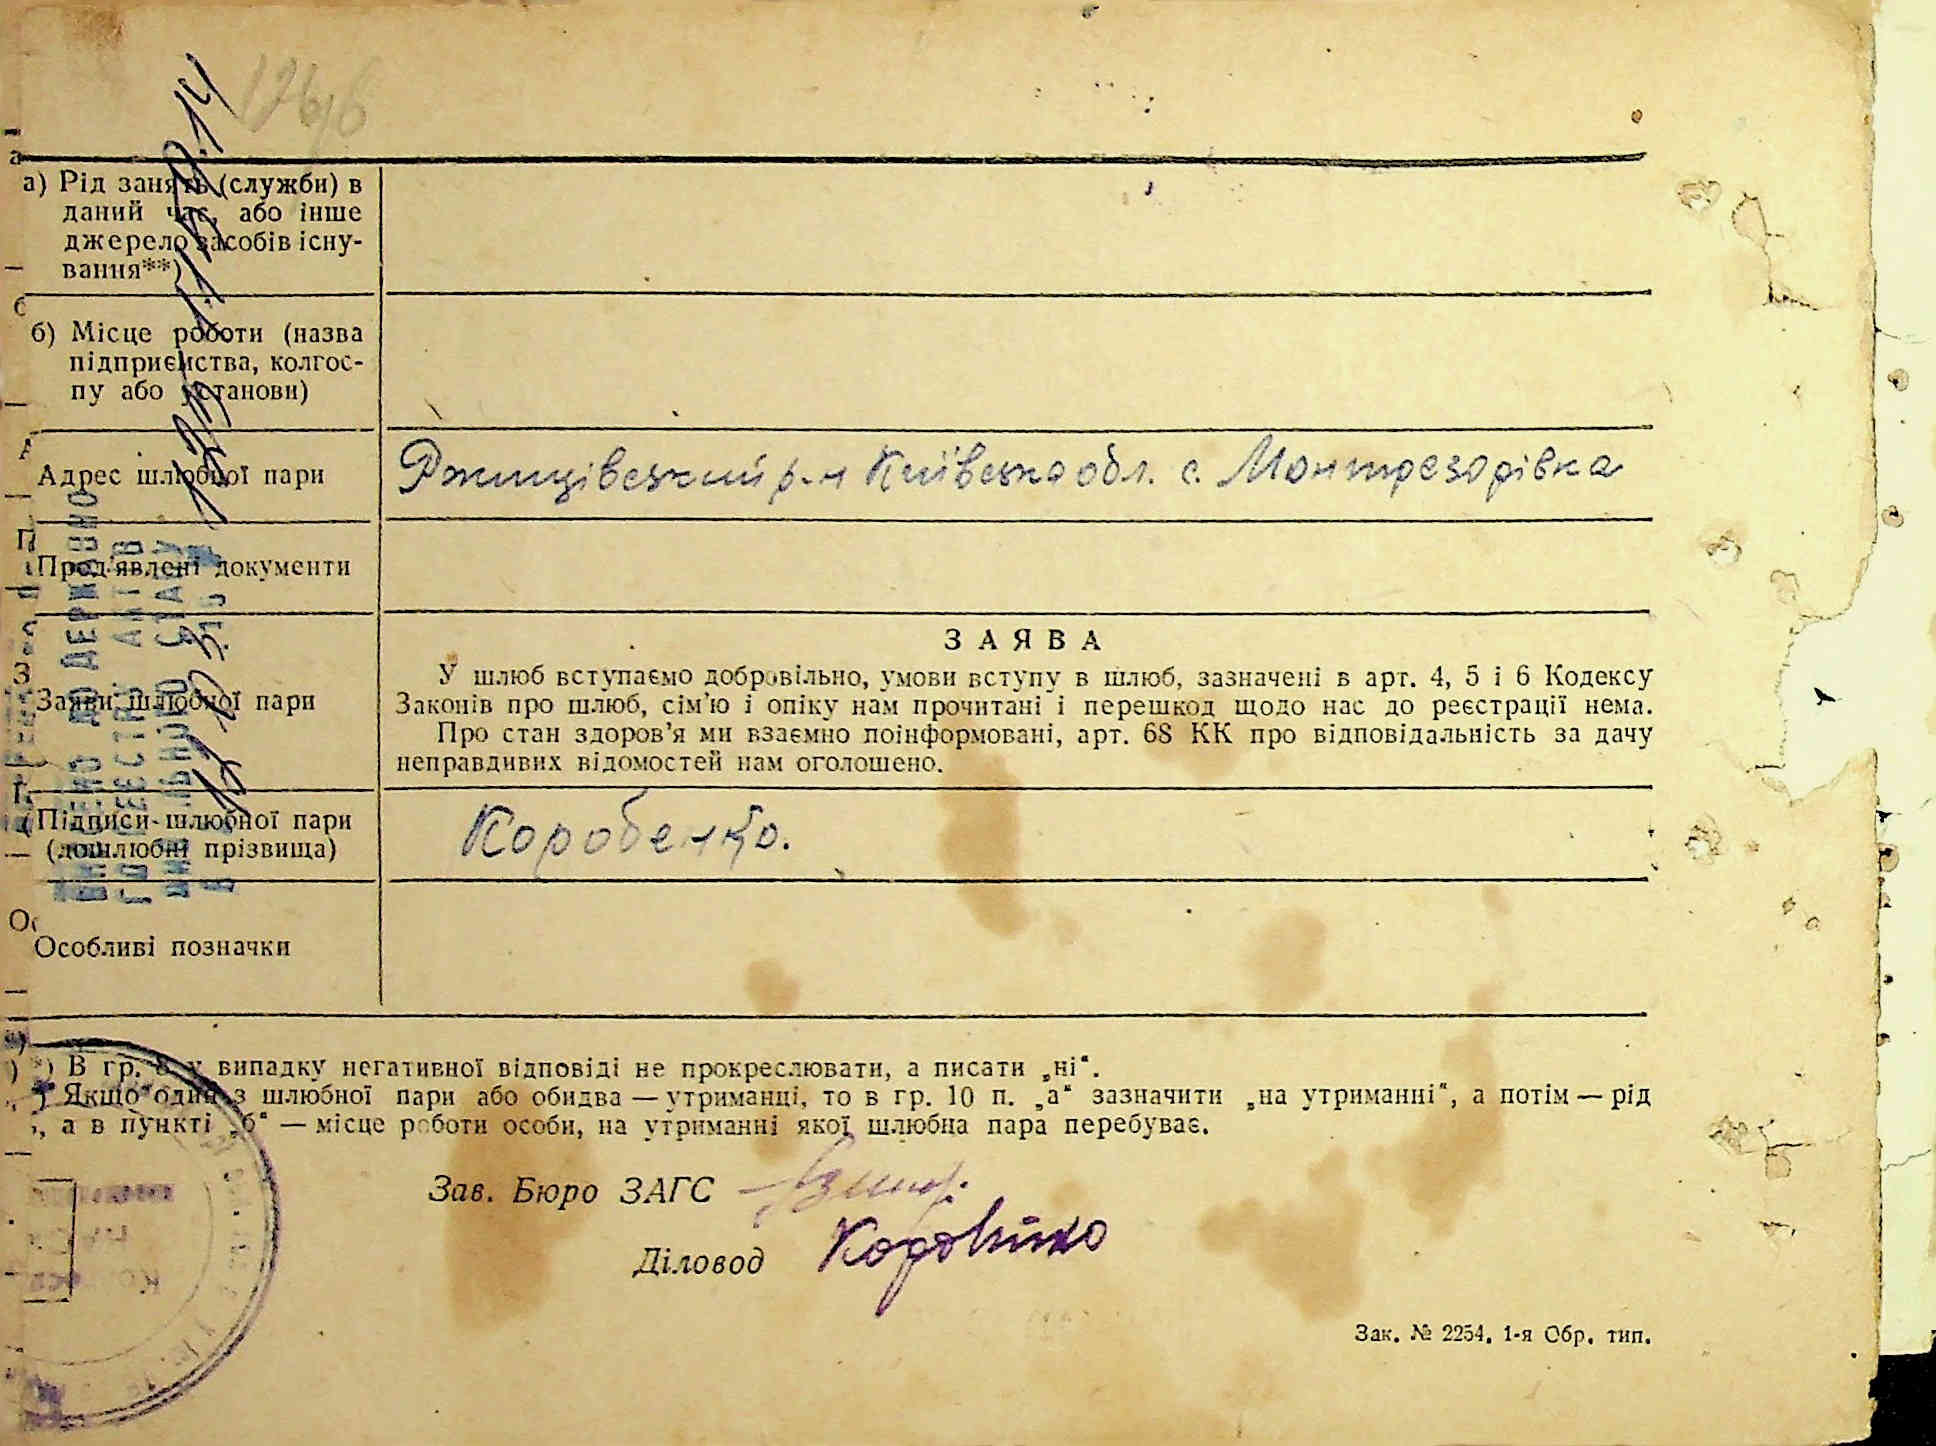 а) Рід занять (служби) в
даний час, або інше
джерело засобів існу-
вання**)
б) Місце роботи (назва
підприємства, колгос-
пу або установи)
Адрес шлюбної пари
Ржищівський р-н Київська обл. с. Монтрезорівка
Прод'явлені документи
Заяви шлюбної пари
ЗАЯВА
У шлюб вступаємо добровільно, умови вступу в шлюб, зазначені в арт. 4, 5 і 6 Кодексу
Законів про шлюб, сім'ю і опіку нам прочитані і перешкод щодо нас до реєстрації нема.
Про стан здоров'я ми взаємно поінформовані, арт. 68 КК про відповідальність за дачу
неправдивих відомостей нам оголошено.
Підписи шлюбної пари
(дошлюбні прізвища)
Коробенко.
Особливі позначки
*) В гр. 8 у випадку негативної відповіді не прокреслювати, а писати „ні“.
Якщо один з шлюбної пари або обидва — утриманці, то в гр. 10 п. „а“ зазначити „на утриманні“, а потім — рід
а в пункті „б“ — місце роботи особи, на утриманні якої шлюбна пара перебуває.
Зав. Бюро ЗАГС
Діловод
Зак. № 2254. 1-я Обр. тип.